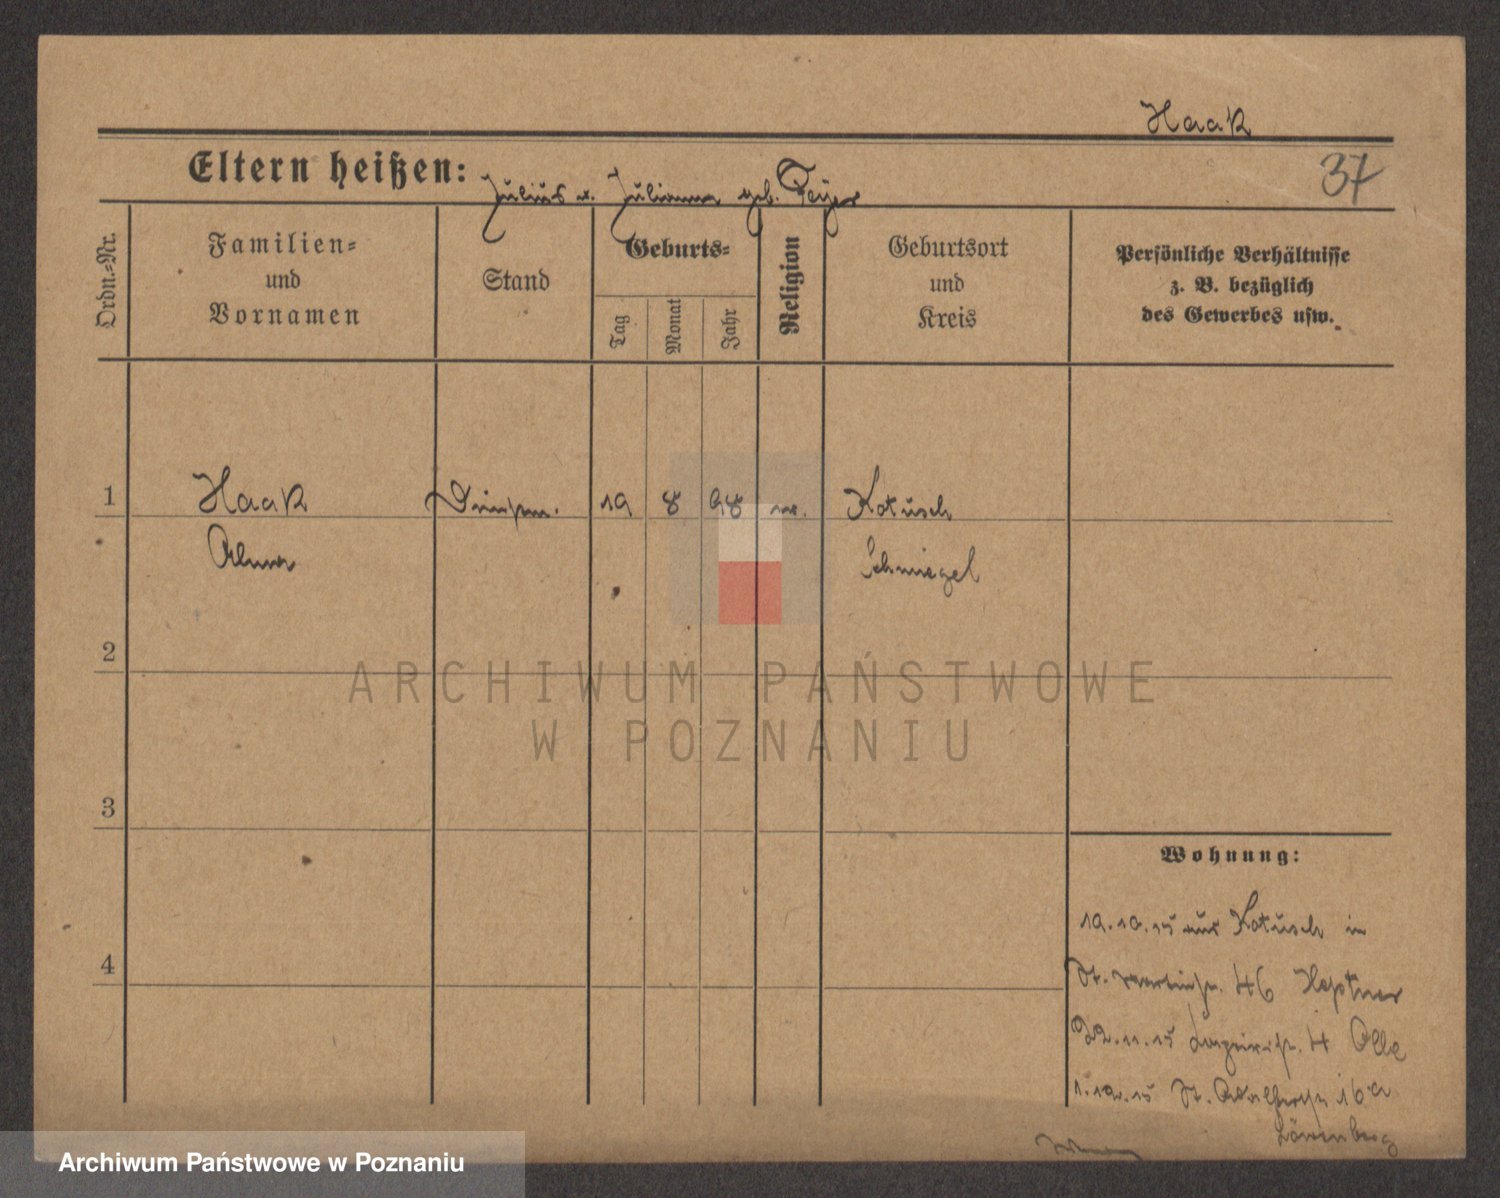 Haak
37
Eltern heißen: Julius u. Julianna geb. Feyer
Ordn.-Nr.
Familien-
und
Vornamen
Stand
Geburts-
Tag
Monat
Jahr
Religion
Geburtsort
und
Kreis
Persönliche Verhältnisse
z. B. bezüglich
des Gewerbes usw.
1 Haak 19 8 98 Kotusch
Schmiegel
2
ARCHIWUM PAŃSTWOWE
W POZNANIU
3
Wohnung:
19.10.15 aus Kotusch in
4
St. Martinstr. 46 Heptner
22.11.15 4
1.12.15 St. Adalbertstr. 16a
Löwenberg
Archiwum Państwowe w Poznaniu